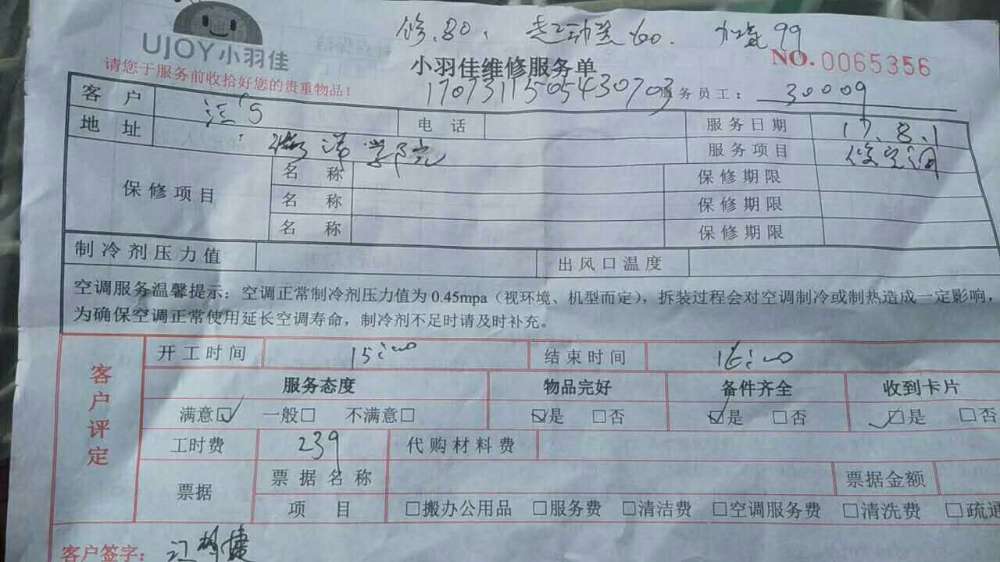 修.80、 起动壳60. 加氟99
UJOY小羽佳
小羽佳维修服务单
NO. 0065356
请您于服务前收拾好您的贵重物品!
170731150505430703
服务员工: 30009
客户 汪巧 电话 服务日期 17.8.1
地址 学院 服务项目 修空调
保修项目 名称 保修期限
名称 保修期限
名称 保修期限
制冷剂压力值 出风口温度
空调服务温馨提示:空调正常制冷剂压力值为0.45mpa(视环境、机型而定),拆装过程会对空调制冷或制热造成一定影响,
为确保空调正常使用延长空调寿命,制冷剂不足时请及时补充。
客户评定
开工时间 15:00 结束时间 16:00
服务态度 物品完好 备件齐全 收到卡片
满意☑ 一般□ 不满意□ ☑是 □否 ☑是 □否 ☑是 □否
工时费 239 代购材料费
票据 票据名称 票据金额
项目 □搬办公用品 □服务费 □清洁费 □空调服务费 □清洗费 □疏通
客户签字: